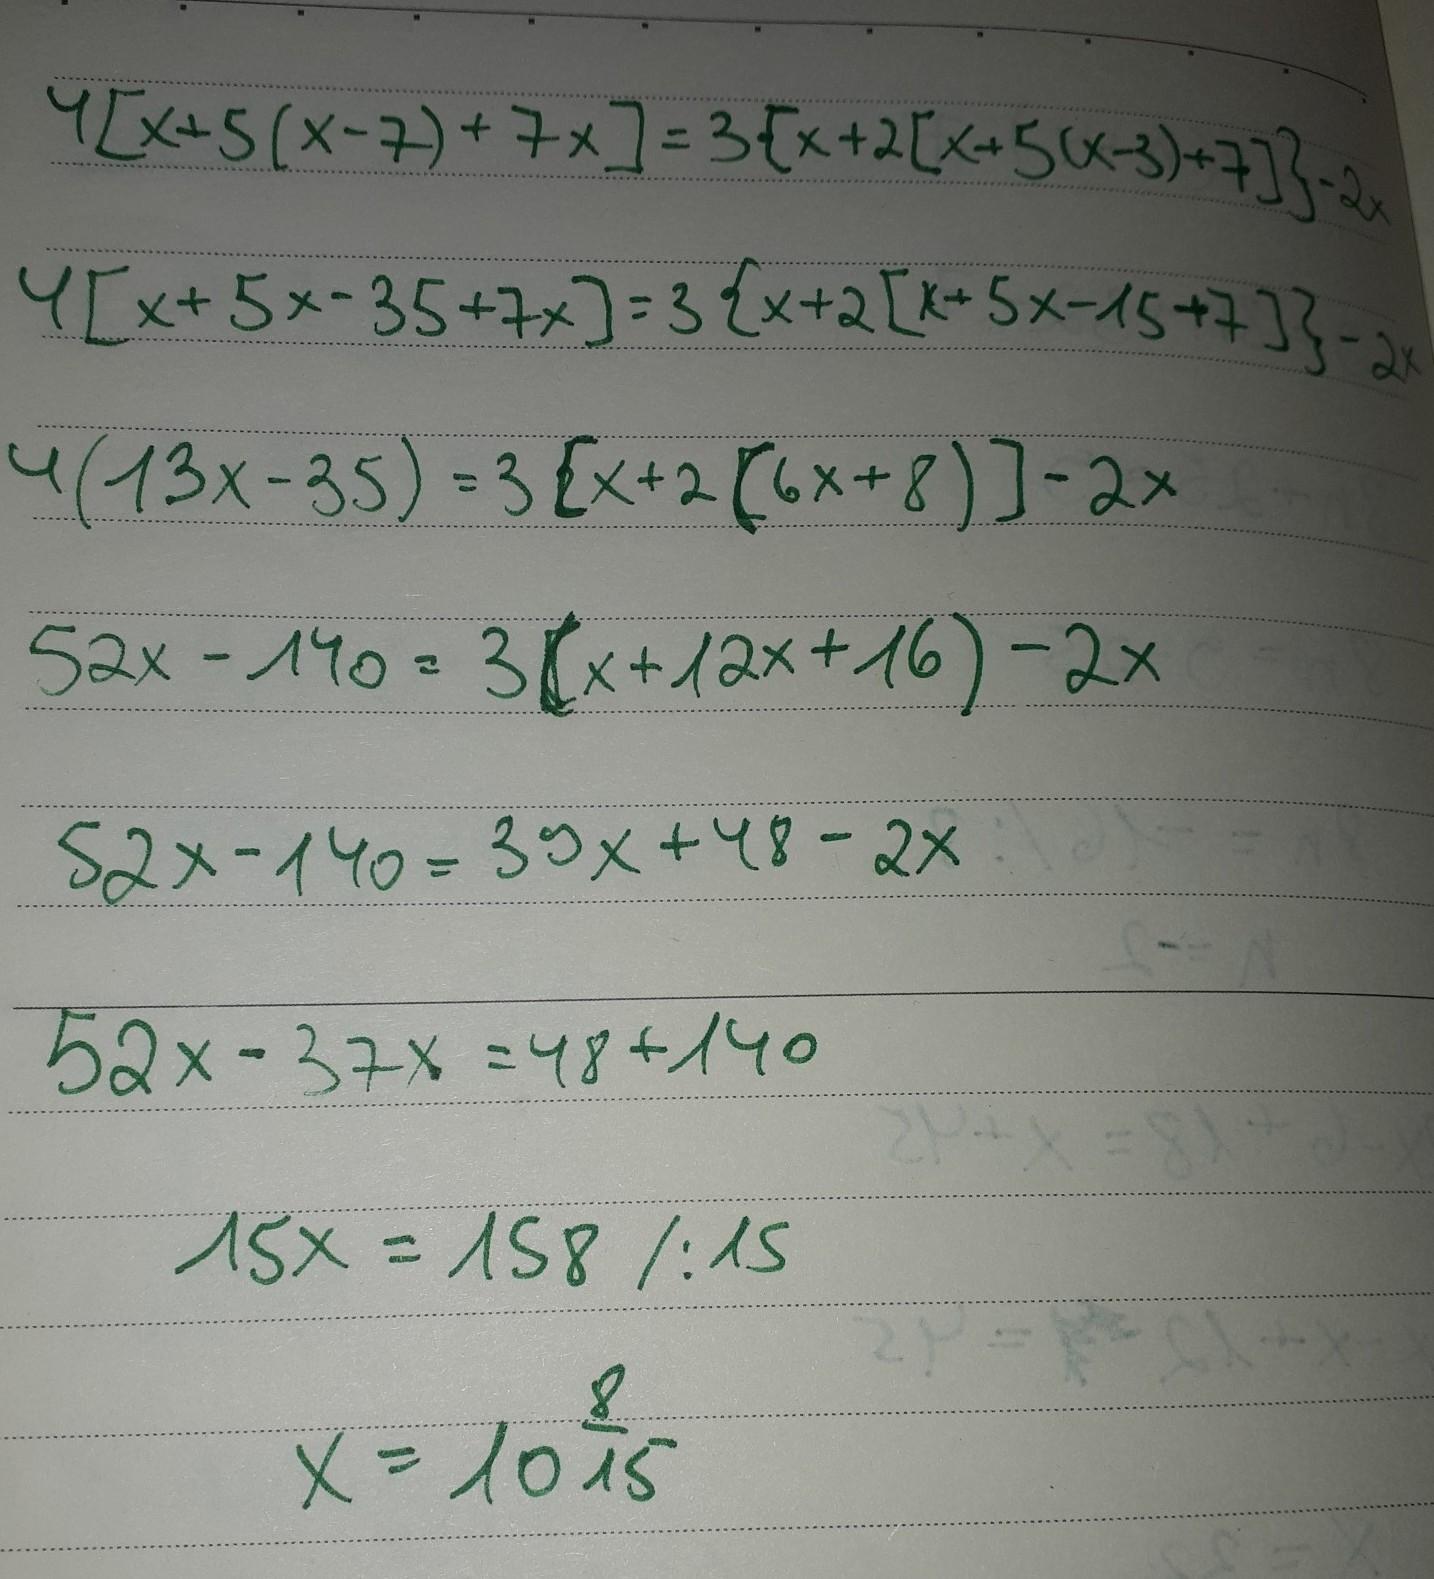 4[x+5(x-7)+7x]=3{x+2[x+5(x-3)+7]}-2x
4[x+5x-35+7x]=3{x+2[x+5x-15+7]}-2x
4(13x-35)=3[x+2(6x+8)]-2x
52x-140=3(x+12x+16)-2x
52x-140=39x+48-2x
52x-37x=48+140
15x=158 /:15
x=10 8/15